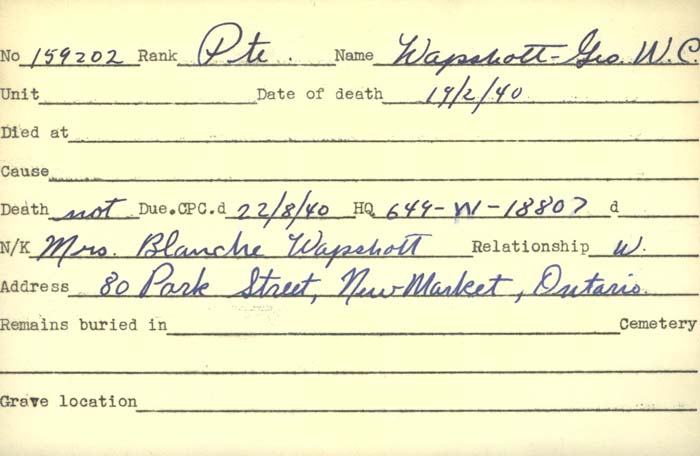 No 159202 Rank Pte. Name Wapshott-Geo. W.C.
Unit Date of death 19/2/40
Died at
Cause
Death not Due.CPC.d 22/8/40 HQ 649-W-18807 d
N/K Mrs. Blanche Wapshott Relationship W.
Address 80 Park Street, New Market, Ontario.
Remains buried in Cemetery
Grave location